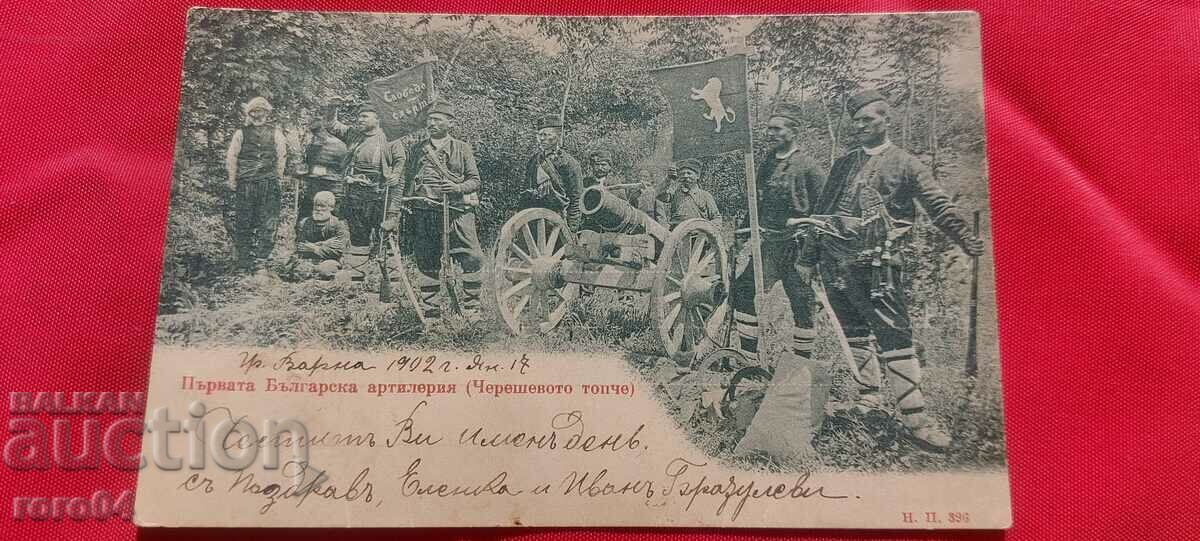 Свобода
смърть
Гр. Варна 1902 г. Ян. 17
Първата Българска артилерия (Черешевото топче)
Честитъ Ви именъ день.
съ Поздравъ, Еленка и Иванъ Бразулеви.
Н. П. 396
BALKAN
auction
roro04